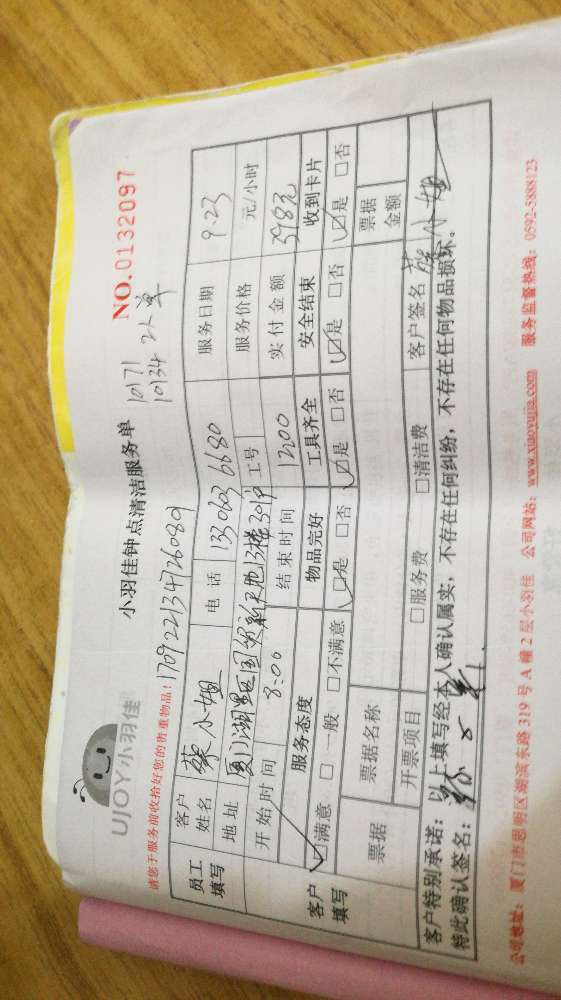 UJOY小羽佳
小羽佳钟点清洁服务单
NO.0132097
请您于服务前收拾好您的贵重物品!
170922134726089
10171
10134 2人单
员工填写
客户姓名 蔡小姐 电话 13306036680 服务日期 9.23
地址 厦门湖里区国贸新天地13楼 工号 服务价格 元/小时
开始时间 8:00 结束时间 1200 实付金额 398元
客户填写
服务态度 物品完好 工具齐全 安全结束 收到卡片
☑满意 □一般 □不满意 ☑是 □否 ☑是 □否 ☑是 □否 ☑是 □否
票据 票据名称 票据金额
开票项目 □服务费 □清洁费 客户签名 蔡小姐
客户特别承诺: 以上填写经本人确认属实, 不存在任何纠纷, 不存在任何物品损坏。
特此确认签名:
公司地址: 厦门市思明区湖滨东路 319 号 A 幢 2 层小羽佳 公司网站: www.xiaoyujia.com 服务监督热线: 0592-5888123